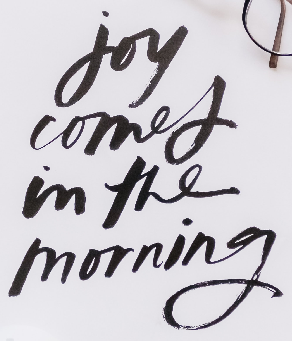 joy
comes
in the
morning